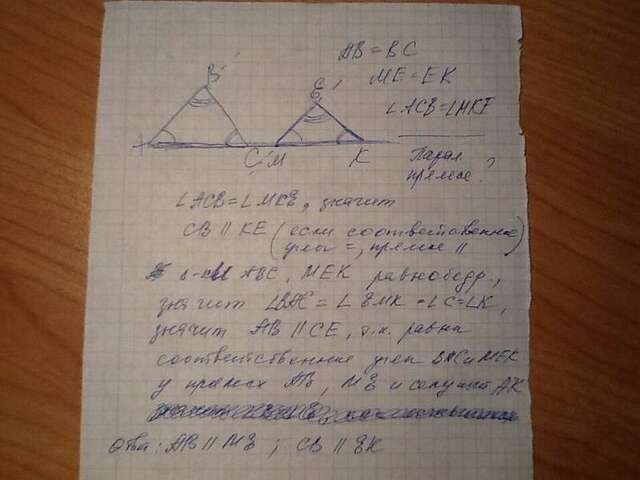 AB = BC
ME = EK
∠ACB = ∠MKE
B
E
A
C
M
K
Парал.
прямые?
∠ACB = ∠MKE, значит
CB || KE (если соответственные
углы =, прямые ||)
ABC, MEK равнобедр.,
значит ∠BAC = ∠EMK = ∠C = ∠K,
значит AB || CE, т.к. равны
соответственные углы BAC и MEK
у прямых AB, ME и секущей AK
Ответ: AB || ME ; CB || EK